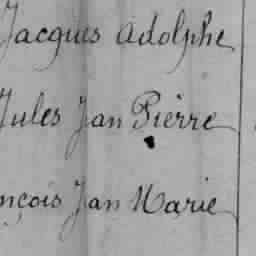 Jacques Adolphe
Jules Jan Pièrre
nçois Jan Marie